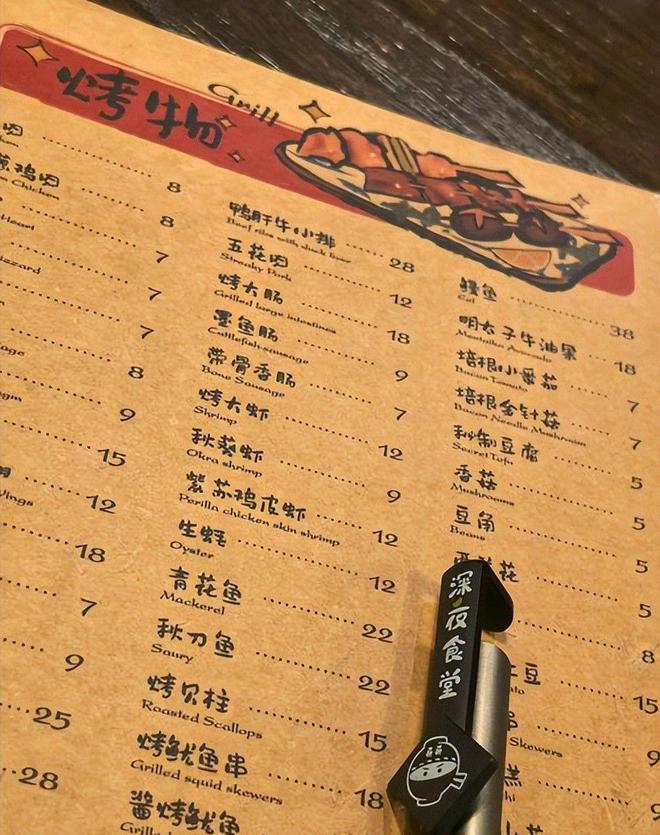 烤物 Grill
肉
8
葱鸡肉
Chicken
8
Heart
7
7
7
8
9
15
12
18
7
9
25
28
鸭肝牛小排 28
Beef ribs with duck liver
五花肉 12
Streaky Pork
烤大肠 18
Grilled large intestines
墨鱼肠 9
Cuttlefish sausage
带骨香肠 7
Bone Sausage
烤大虾 12
Shrimp
秋葵虾 9
Okra shrimp
紫苏鸡皮虾 12
Perilla chicken skin shrimp
生蚝 12
Oyster
青花鱼 22
Mackerel
秋刀鱼 22
Saury
烤贝柱 15
Roasted Scallops
烤鱿鱼串 18
Grilled squid skewers
酱烤鱿鱼
鳗鱼 38
Eel
明太子牛油果 18
Mentaiko Avocado
培根小番茄 7
Bacon Tomato
培根金针菇 7
Bacon Needle Mushroom
秘制豆腐 5
Secret Tofu
香菇 5
Mushrooms
豆角 5
Beans
花 5
8
土豆 15
串 9
Skewers
9
深夜食堂